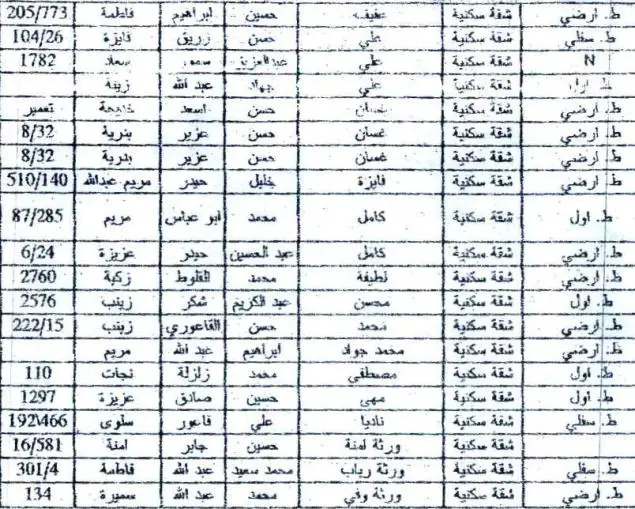 ط. ارضي شقة سكنية عفيف حسين ابراهيم فاطمة 205/773
ط. سفلي شقة سكنية علي حسن زريق فايزة 104/26
N شقة سكنية علي عبدالعزيز سعاد 1782
ط. اول شقة سكنية علي جواد عبد الله زينة
ط. ارضي شقة سكنية غسان حسن اسعد خديجة تعمير
ط. ارضي شقة سكنية غسان حسن عزير بدرية 8/32
ط. ارضي شقة سكنية غسان حسن عزير بدرية 8/32
ط. ارضي شقة سكنية فايزة خليل حيدر مريم عبدالله 510/140
ط. اول شقة سكنية كامل محمد ابو عباس مريم 87/285
ط. ارضي شقة سكنية كامل عبد الحسين حيدر عزيزة 6/24
ط. ارضي شقة سكنية لطيفة محمد القلوط زكية 2760
ط. اول شقة سكنية محسن عبد الكريم شكر زينب 2576
ط. ارضي شقة سكنية محمد حسن القاعوري زينب 222/15
ط. ارضي شقة سكنية محمد جواد ابراهيم عبد الله مريم
ط. اول شقة سكنية مصطفى محمد زلزلة نجات 110
ط. اول شقة سكنية مهى حسين صادق عزيزة 1297
ط. سفلي شقة سكنية ناديا علي فاعور سلوى 192\466
شقة سكنية ورثة امنة حسين جابر امنة 16/581
ط. سفلي شقة سكنية ورثة رباب محمد سعيد عبد الله فاطمة 301/4
ط. ارضي شقة سكنية ورثة وفي محمد عبد الله سميرة 134